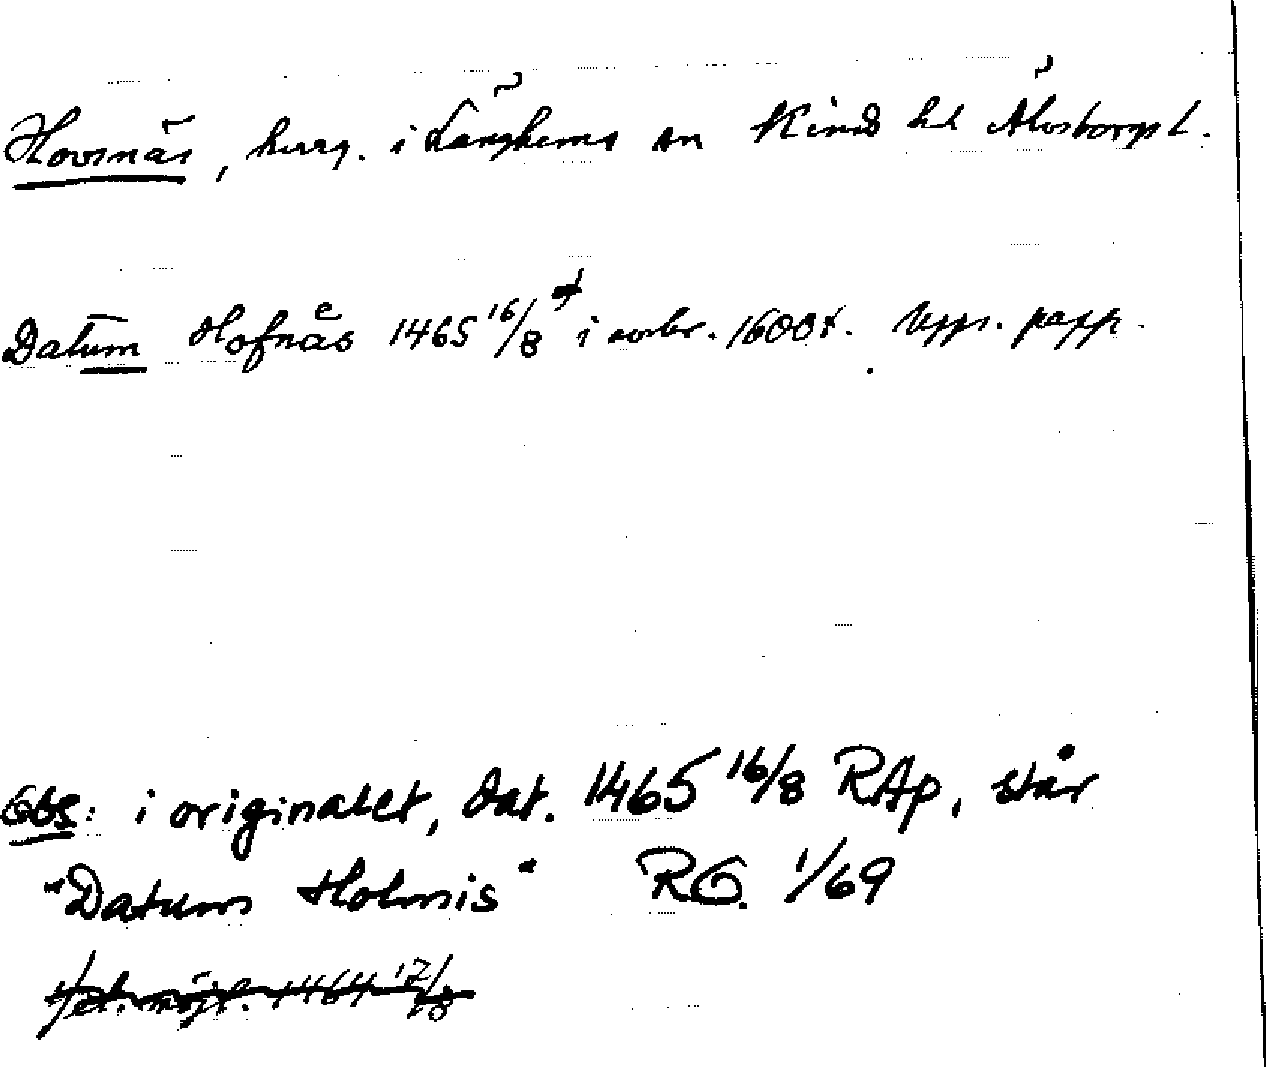 Hovsnäs, herrg. i Länghems sn Kinds hd Älvsborgs l.
Datum Hofnäs 1465 16/8 i avskr. 1600t. Upps. papp.
Obs: i originalet, dat. 1465 16/8 RAp, står
"Datum Holmis" RG. 1/69
el. möjl. 1464 17/8